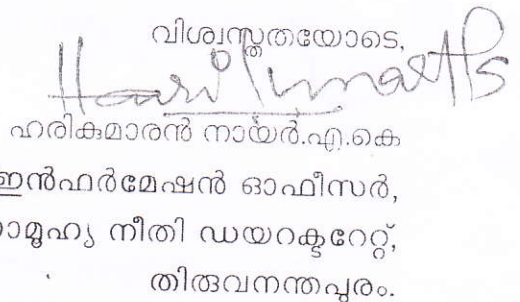 വിശ്വസ്തതയോടെ,
ഹരികുമാരൻ നായർ.എ.കെ
ഇൻഫർമേഷൻ ഓഫീസർ,
സാമൂഹ്യ നീതി ഡയറക്ടറേറ്റ്,
തിരുവനന്തപുരം.